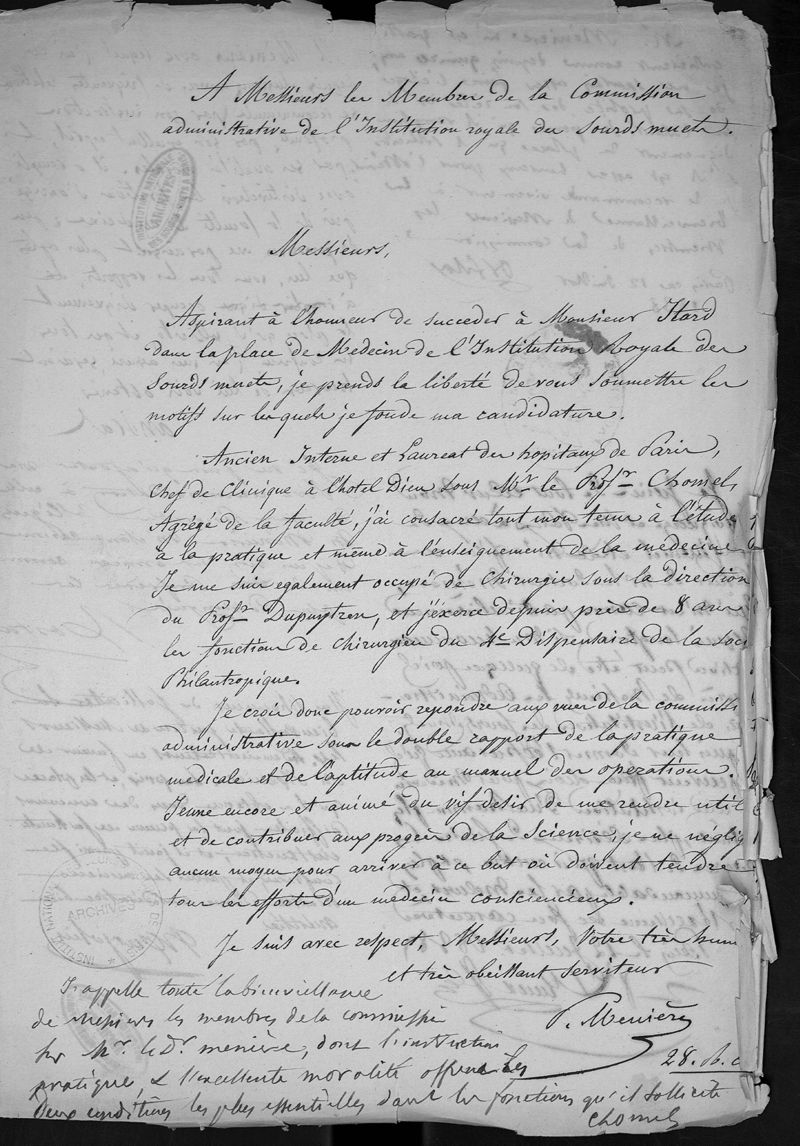 A Messieurs les Membres de la Commission
administrative de l'Institution royale des Sourds muets.
Messieurs,
Aspirant à l'honneur de succeder à Monsieur Itard
dans la place de Médecin de l'Institution Royale des
Sourds muets, je prends la liberté de vous soumettre les
motifs sur lesquels je fonde ma candidature.
Ancien Interne et Laureat des hopitaux de Paris,
Chef de Clinique à l'hotel Dieu sous Mr le Profr Chomel,
Agrégé de la faculté, j'ai consacré tout mon tems à l'étude
à la pratique et même à l'enseignement de la médecine
Je me suis egalement occupé de Chirurgie sous la direction
du Profr Dupuytren, et j'exerce depuis près de 8 ans
les fonction de Chirurgien du 4e Dispensaire de la Soci
Philantropique.
Je crois donc pouvoir repondre aux vues de la commissi
administrative sous le double rapport de la pratique
médicale et de l'aptitude au manuel des operations.
Jeune encore et animé du vif desir de me rendre util
et de contribuer aux progrès de la Science, je ne néglig
aucun moyen pour arriver à ce but où doivent tendre
tous les efforts d'un medecin consciencieux.
Je suis avec respect, Messieurs, Votre très hum
et très obéissant serviteur
P. Menière
28.
J'appelle toute la bienveillance
de messieurs les membres de la commission
sur Mr. le Dr. menière, dont l'instruction
pratique & l'excellente moralité offrent les
deux conditions les plus essentielles dans les fonctions qu'il sollicite
Chomel
INSTITUTION NATIONALE
ARCHIVES